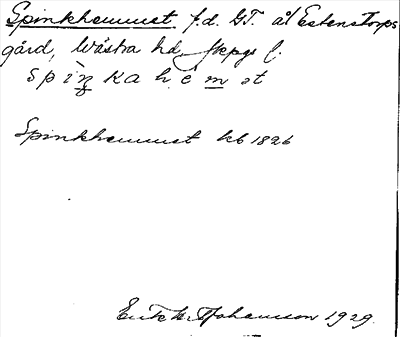 Spinkhemmet f.d. GT. å Estenstorps
gård, Västra hd, Skpgs l.
spìŋkahèmət
Spinkhemmet kb 1826
Erik K. Johansson 1929.